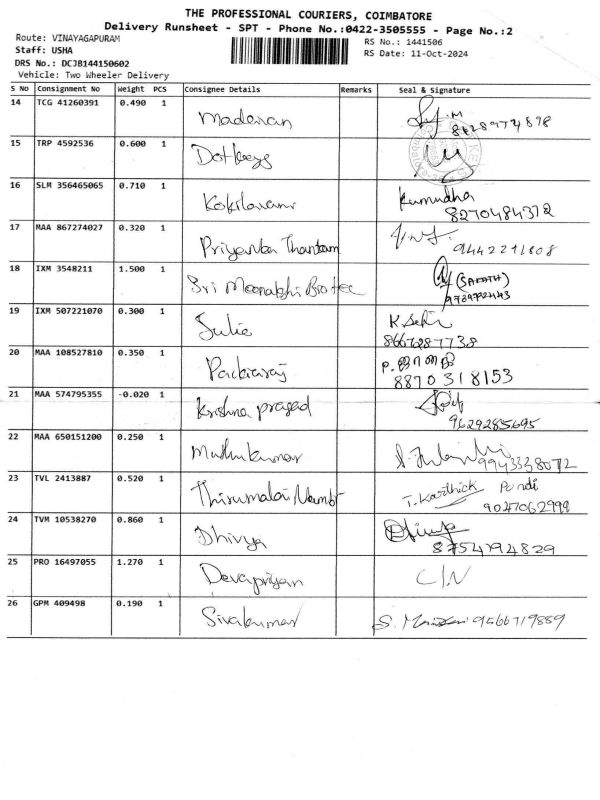 THE PROFESSIONAL COURIERS, COIMBATORE
Delivery Runsheet - SPT - Phone No.:0422-3505555 - Page No.:2
Route: VINAYAGAPURAM
RS No.: 1441506
Staff: USHA
RS Date: 11-Oct-2024
DRS No.: DCJB144150602
Vehicle: Two Wheeler Delivery
S No Consignment No Weight PCS Consignee Details Remarks Seal & Signature
14 TCG 41260391 0.490 1 Madavan
15 TRP 4592536 0.600 1
16 SLM 356465065 0.710 1 Kumudha
8270484312
17 MAA 867274027 0.320 1 Priyanka
9442211808
18 IXM 3548211 1.500 1 Sri Meenakshi Biotec
19 IXM 507221070 0.300 1 Julie
8667287738
20 MAA 108527810 0.350 1 Packiaraj
8870318153
21 MAA 574795355 -0.020 1 Krishna prasad
9629285695
22 MAA 650151200 0.250 1 Muthukumar
9943338072
23 TVL 2413887 0.520 1 Thirumalai Nambi T. Karthick Pandi
9047062999
24 TVM 10538270 0.860 1 Dhivya
8754794829
25 PRO 16497055 1.270 1 Devapriyan
26 GPM 409498 0.190 1 Sivakumar 9566719889